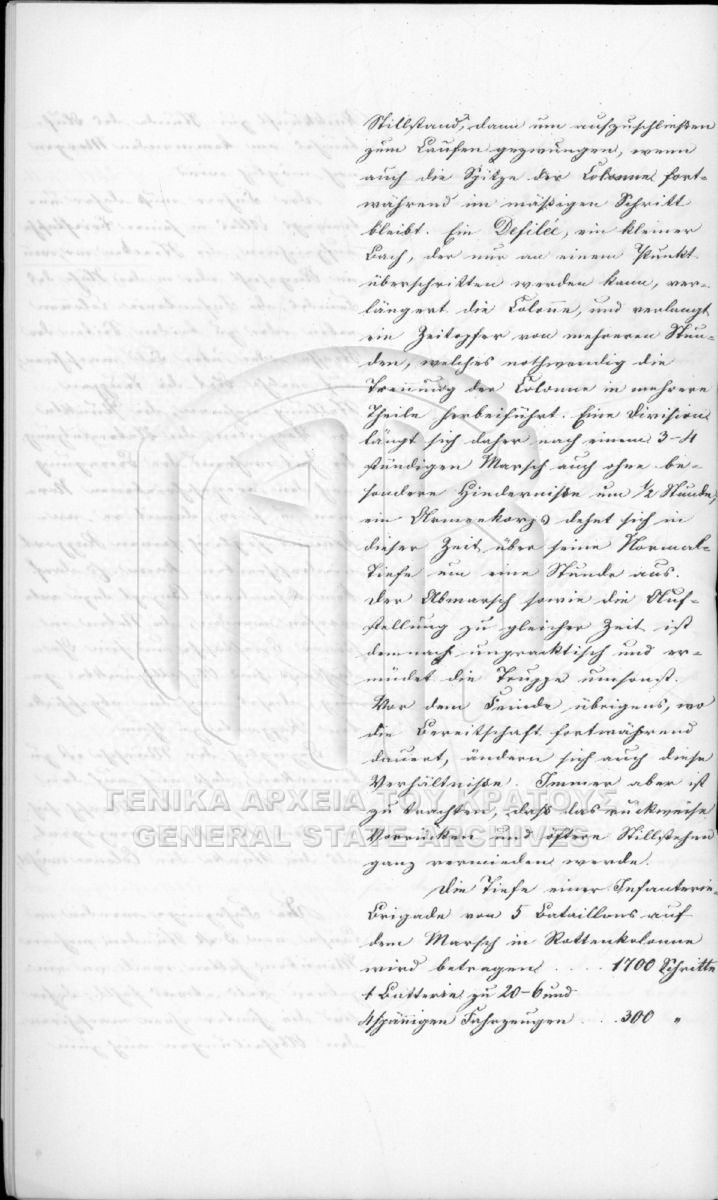 Stillstand, dann um aufzuschließen
zum Laufen gezwungen, wenn
auch die Spitze der Colonne fort-
während im mäßigen Schritt
bleibt. Ein Defilée, ein kleiner
Bach, der nur an einem Punkt
überschritten werden kann, ver-
längert die Colonne, und verlangt
ein Zeitopfer von mehreren Stun-
den, welches nothwendig die
Trennung der Colonne in mehrere
Theile herbeiführt. Eine Division
längt sich daher nach einem 3-4
stündigen Marsch auch ohne be-
sondere Hinderniße um 1/2 Stunde,
ein Armeekorps dehnt sich in
dieser Zeit über seine Normal-
Tiefe um eine Stunde aus.
Der Abmarsch sowie die Auf-
stellung zu gleicher Zeit ist
demnach unpracktisch und er-
müdet die Truppe umsonst.
Vor dem Feinde übrigens, wo
die Bereitschaft fortwährend
dauert, ändern sich auch diese
Verhältniße. Immer aber ist
zu trachten, daß das ruckweise
Vorrücken und öftere Stillstehen
ganz vermieden werde.
Die Tiefe einer Infanterie-
Brigade von 5 Bataillons auf
dem Marsch in Rottenkolonne
wird betragen . . . . 1700 Schritte
1 Batterie zu 20-6 und
4spännigen Fahrzeugen . . . 300 "
ΓΕΝΙΚΑ ΑΡΧΕΙΑ ΤΟΥ ΚΡΑΤΟΥΣ
GENERAL STATE ARCHIVES